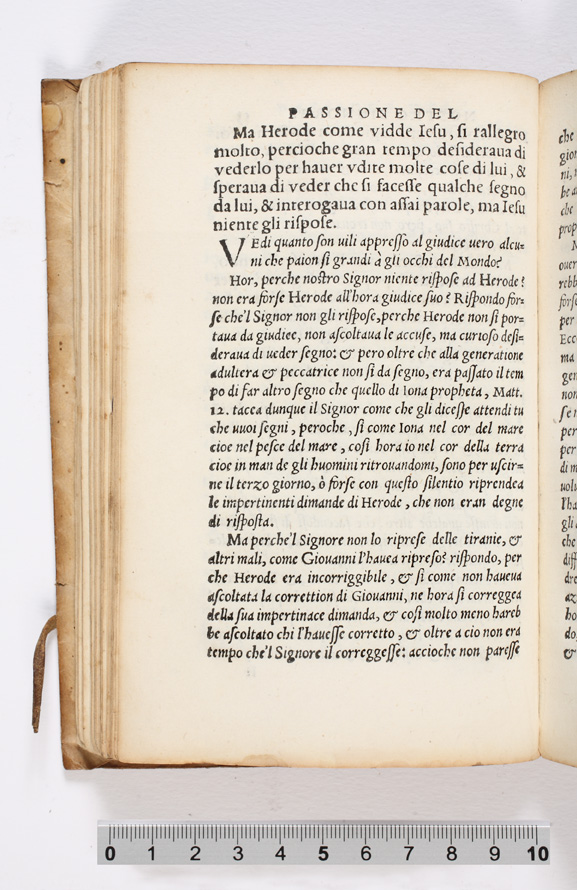 PASSIONE DEL
Ma Herode come vidde Iesu, si rallegro
molto, percioche gran tempo desideraua di
vederlo per hauer vdite molte cose di lui, &
speraua di veder che si facesse qualche segno
da lui, & interogaua con assai parole, ma Iesu
niente gli rispose.
VEdi quanto son uili appresso al giudice uero alcu=
ni che paion si grandi à gli occhi del Mondo?
Hor, perche nostro Signor niente rispose ad Herode?
non era forse Herode all'hora giudice suo? Rispondo for=
se che'l Signor non gli rispose, perche Herode non si por=
taua da giudice, non ascoltaua le accuse, ma curioso desi=
deraua di ueder segno: & pero oltre che alla generatione
adultera & peccatrice non si da segno, era passato il tem
po di far altro segno che quello di Iona propheta, Matt.
12. tacea dunque il Signor come che gli dicesse attendi tu
che uuoi segni, peroche, si come Iona nel cor del mare
cioe nel pesce del mare, cosi hora io nel cor della terra
cioe in man de gli huomini ritrouandomi, sono per uscir=
ne il terzo giorno, ò forse con questo silentio riprendea
le impertinenti dimande di Herode, che non eran degne
di risposta.
Ma perche'l Signore non lo riprese delle tiranie, &
altri mali, come Giouanni l'hauea ripreso? rispondo, per
che Herode era incorriggibile, & si come non haueua
ascoltata la correttion di Giouanni, ne hora si correggea
della sua impertinace dimanda, & cosi molto meno hareb
be ascoltato chi l'hauesse corretto, & oltre a cio non era
tempo che'l Signore il correggesse: accioche non paresse
0 1 2 3 4 5 6 7 8 9 10